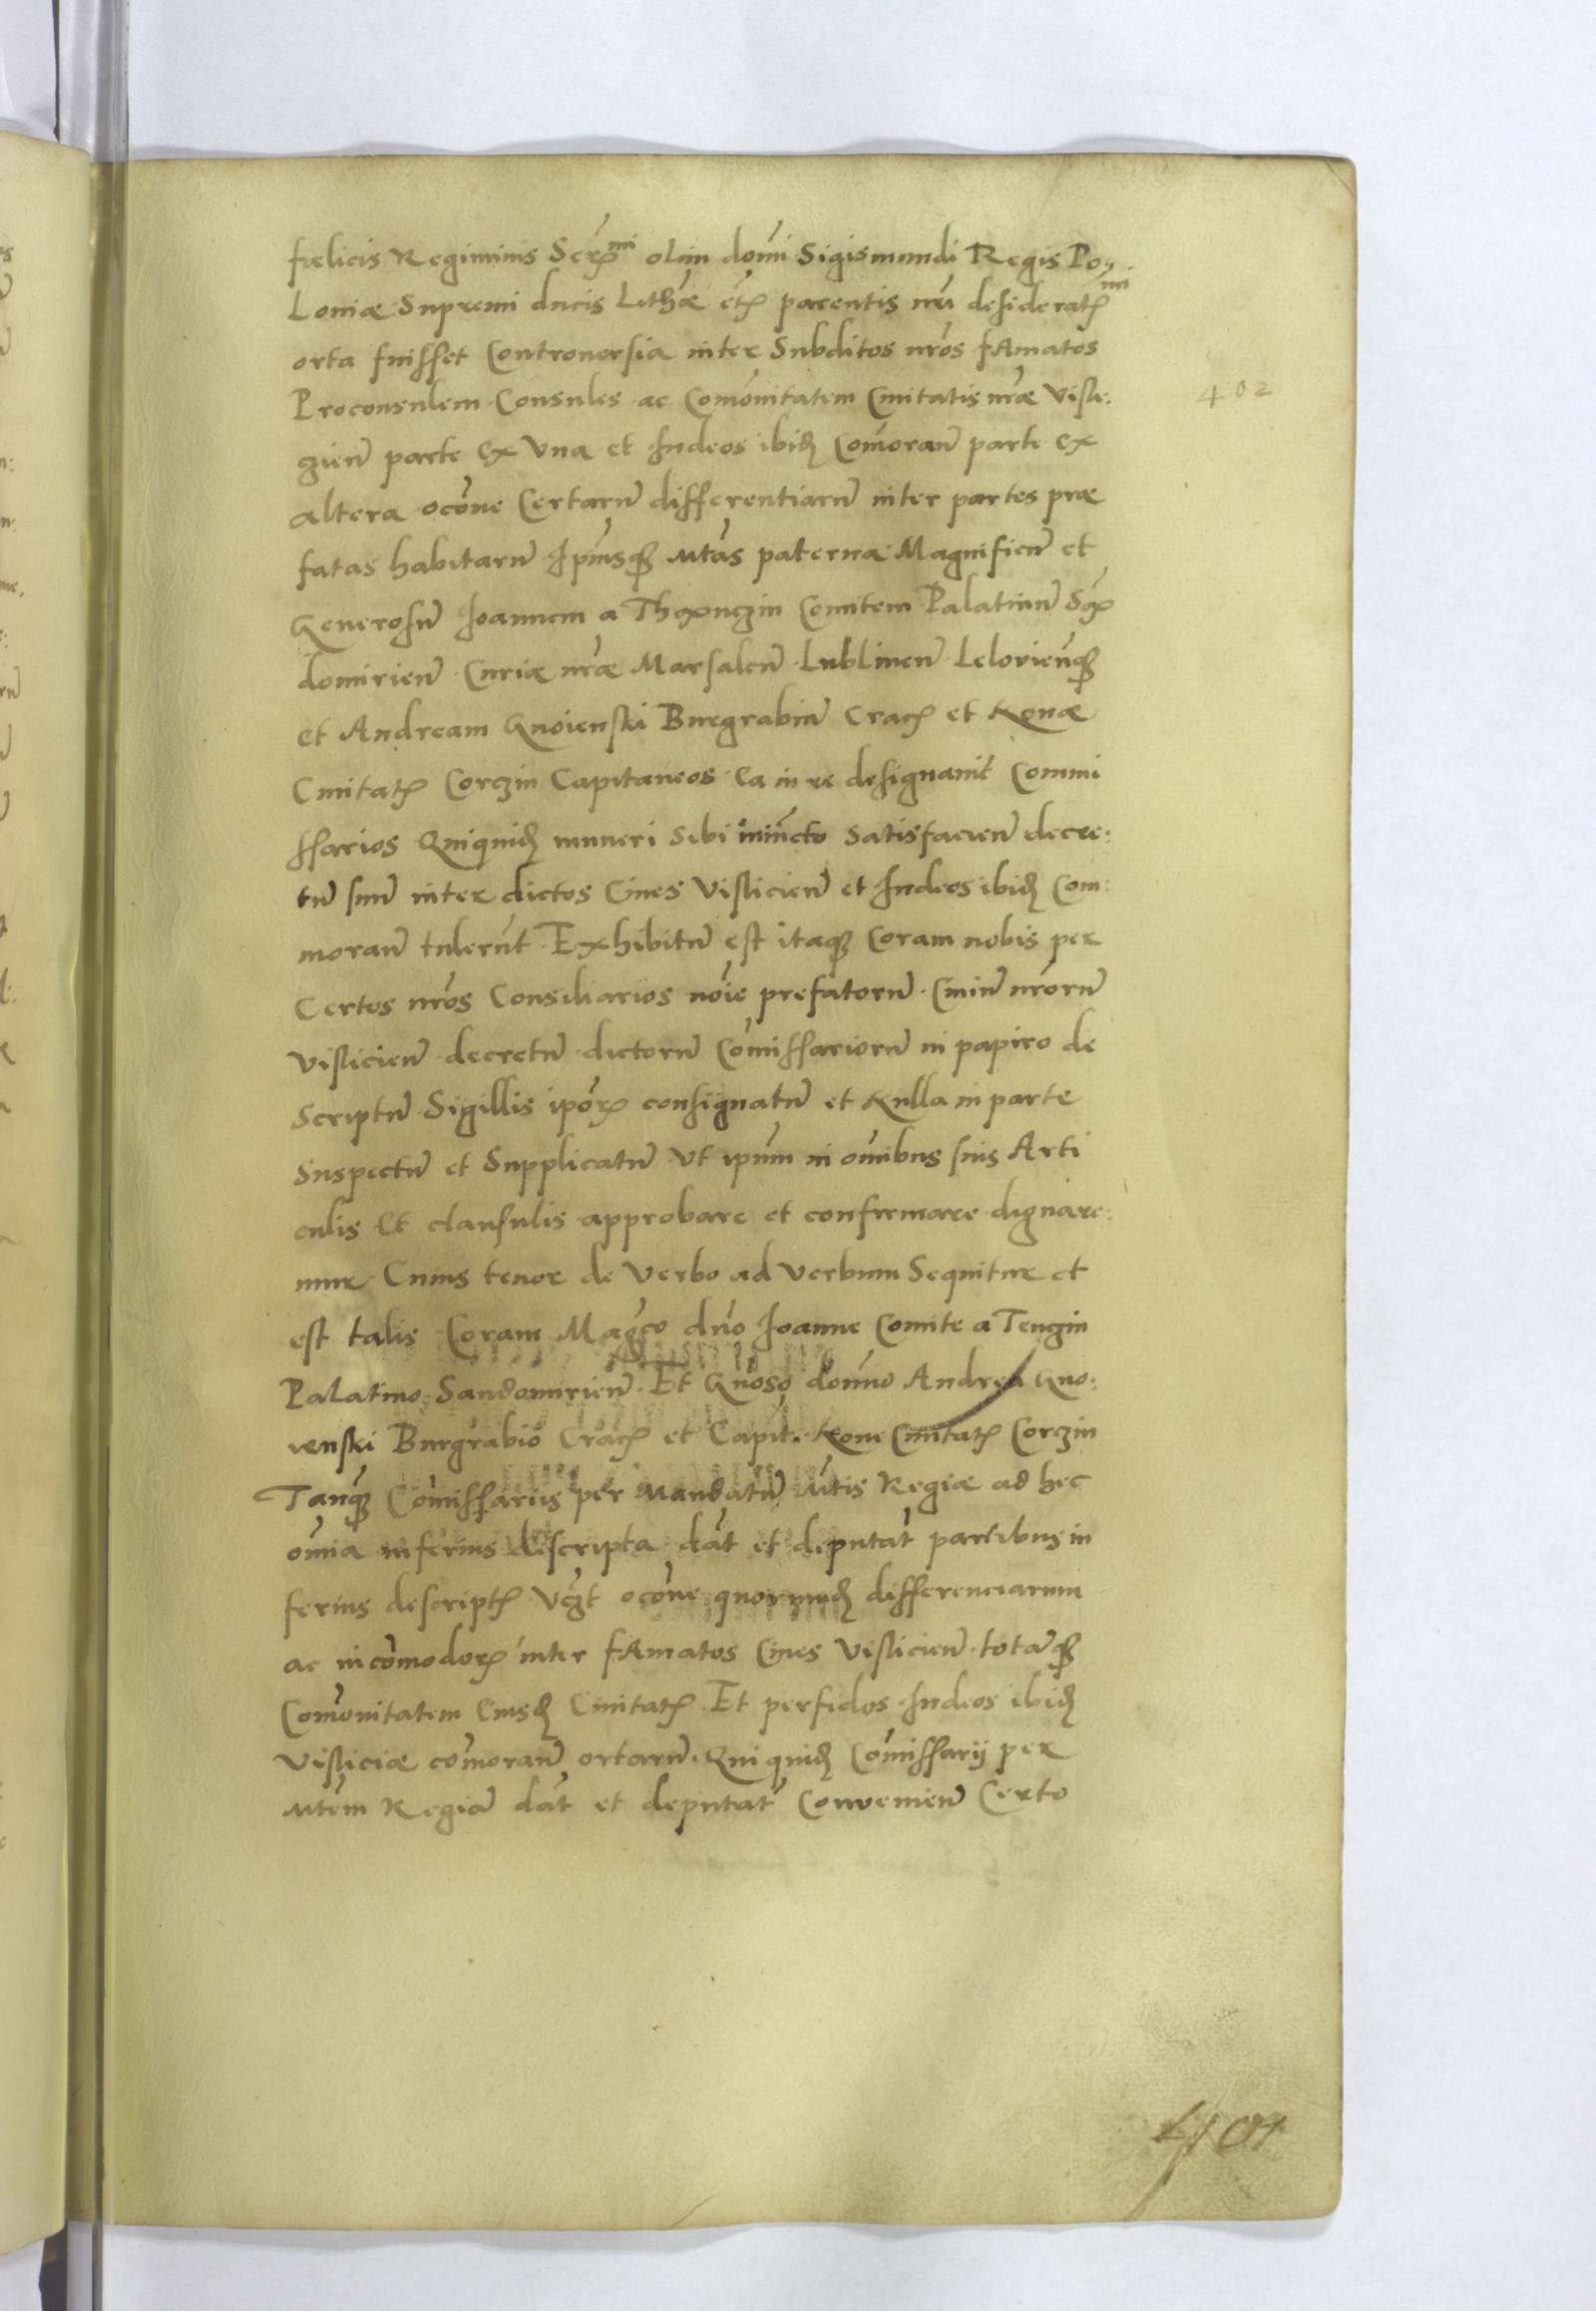 fœlicis Regiminis Serꝫmi olim domī Sigismundi Regis Po,,
Loniæ Supremi ducis Lithæ etꝫ parentis nrī desideratꝫmi
orta fuisset Controuersia inter Subditos nros fAmatos
Proconsulem Consules ac Comonitatem Ciuitatis nræ Visli:
402
gien̄ parte Ex Vna et Iudeos ibidꝫ Comoran̄ parte Ex
altera ocōne Certarū differentiarū inter partes præ
fatas habitarū Ipiusqꝫ Mtas paterna Magnificū et
Generosū Ioannem a Thenczin Comitem Palatinū
domirien̄ Curiæ nræ Marsalcū Lublinen̄ Lelovien̄qꝫ
et Andream Gnoienski Burgrabiū Cracꝫ et Nouæ
Ciuitatꝫ Corczin Capitaneos Ea in re designauit Commi
ssarios Quiquidꝫ muneri Sibi iniūcto Satisfacien̄ decre:
tū suū inter dictos Ciues Vislicien̄ et Iudeos ibidꝫ Com:
moran̄ tulerūt Exhibitū est itaqꝫ Coram nobis per
Certos nros Consiliarios noīe prefatorū Ciuiū nrorū
Vislicien̄ decretū dictorū Comissariorū in papiro de
Scriptū Sigillis ipōrꝫ consignatū et Nulla in parte
Suspectū et Supplicatū Vt ipum in omibus suis Arti
culis Et clausulis approbare et confirmare dignare:
mur Cuius tenor de Verbo ad Verbum Sequitur et
est talis Coram Magco dno Ioanne Comite a Tenczin
Palatino Sandomirien̄ Et Gnoso domno Andrea Gno:
ienski Burgrabio Cracꝫ et Capit. Noue Ciuitatꝫ Corczin
Tanqꝫ Comissariis per Mandatū Mtis Regiæ ad hec
omia inferius descripta dat̄ et deputat̄ partibus in
ferius descriptꝫ Vczt ocōne quorundꝫ differenciarum
ac incomodorꝫ inter fAmatos Ciues Vislicien̄ totāqꝫ
Comonitatem Eiusdꝫ Ciuitatꝫ Et perfidos Iudeos ibidꝫ
Visliciæ comoran̄ ortarū Qui quidꝫ Comissarij per
Mtem Regiā dat̄ et deputat̄ Conuenien̄ Certo
401